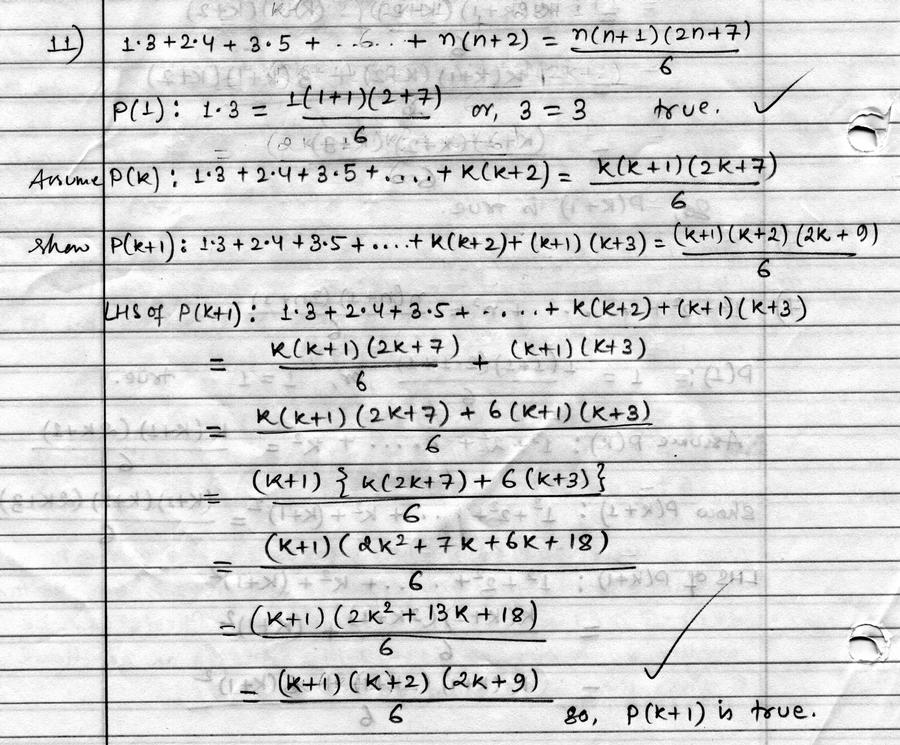 11) 1·3 + 2·4 + 3·5 + ..... + n(n+2) = n(n+1)(2n+7)/6
P(1): 1·3 = 1(1+1)(2+7)/6 or, 3 = 3 true. ✓
Assume P(k): 1·3 + 2·4 + 3·5 + .... + k(k+2) = k(k+1)(2k+7)/6
Show P(k+1): 1·3 + 2·4 + 3·5 + .... + k(k+2) + (k+1)(k+3) = (k+1)(k+2)(2k+9)/6
LHS of P(k+1): 1·3 + 2·4 + 3·5 + ..... + k(k+2) + (k+1)(k+3)
= k(k+1)(2k+7)/6 + (k+1)(k+3)
= k(k+1)(2k+7) + 6(k+1)(k+3)/6
= (k+1){k(2k+7) + 6(k+3)}/6
= (k+1)(2k² + 7k + 6k + 18)/6
= (k+1)(2k² + 13k + 18)/6
= (k+1)(k+2)(2k+9)/6 ✓ So, P(k+1) is true.